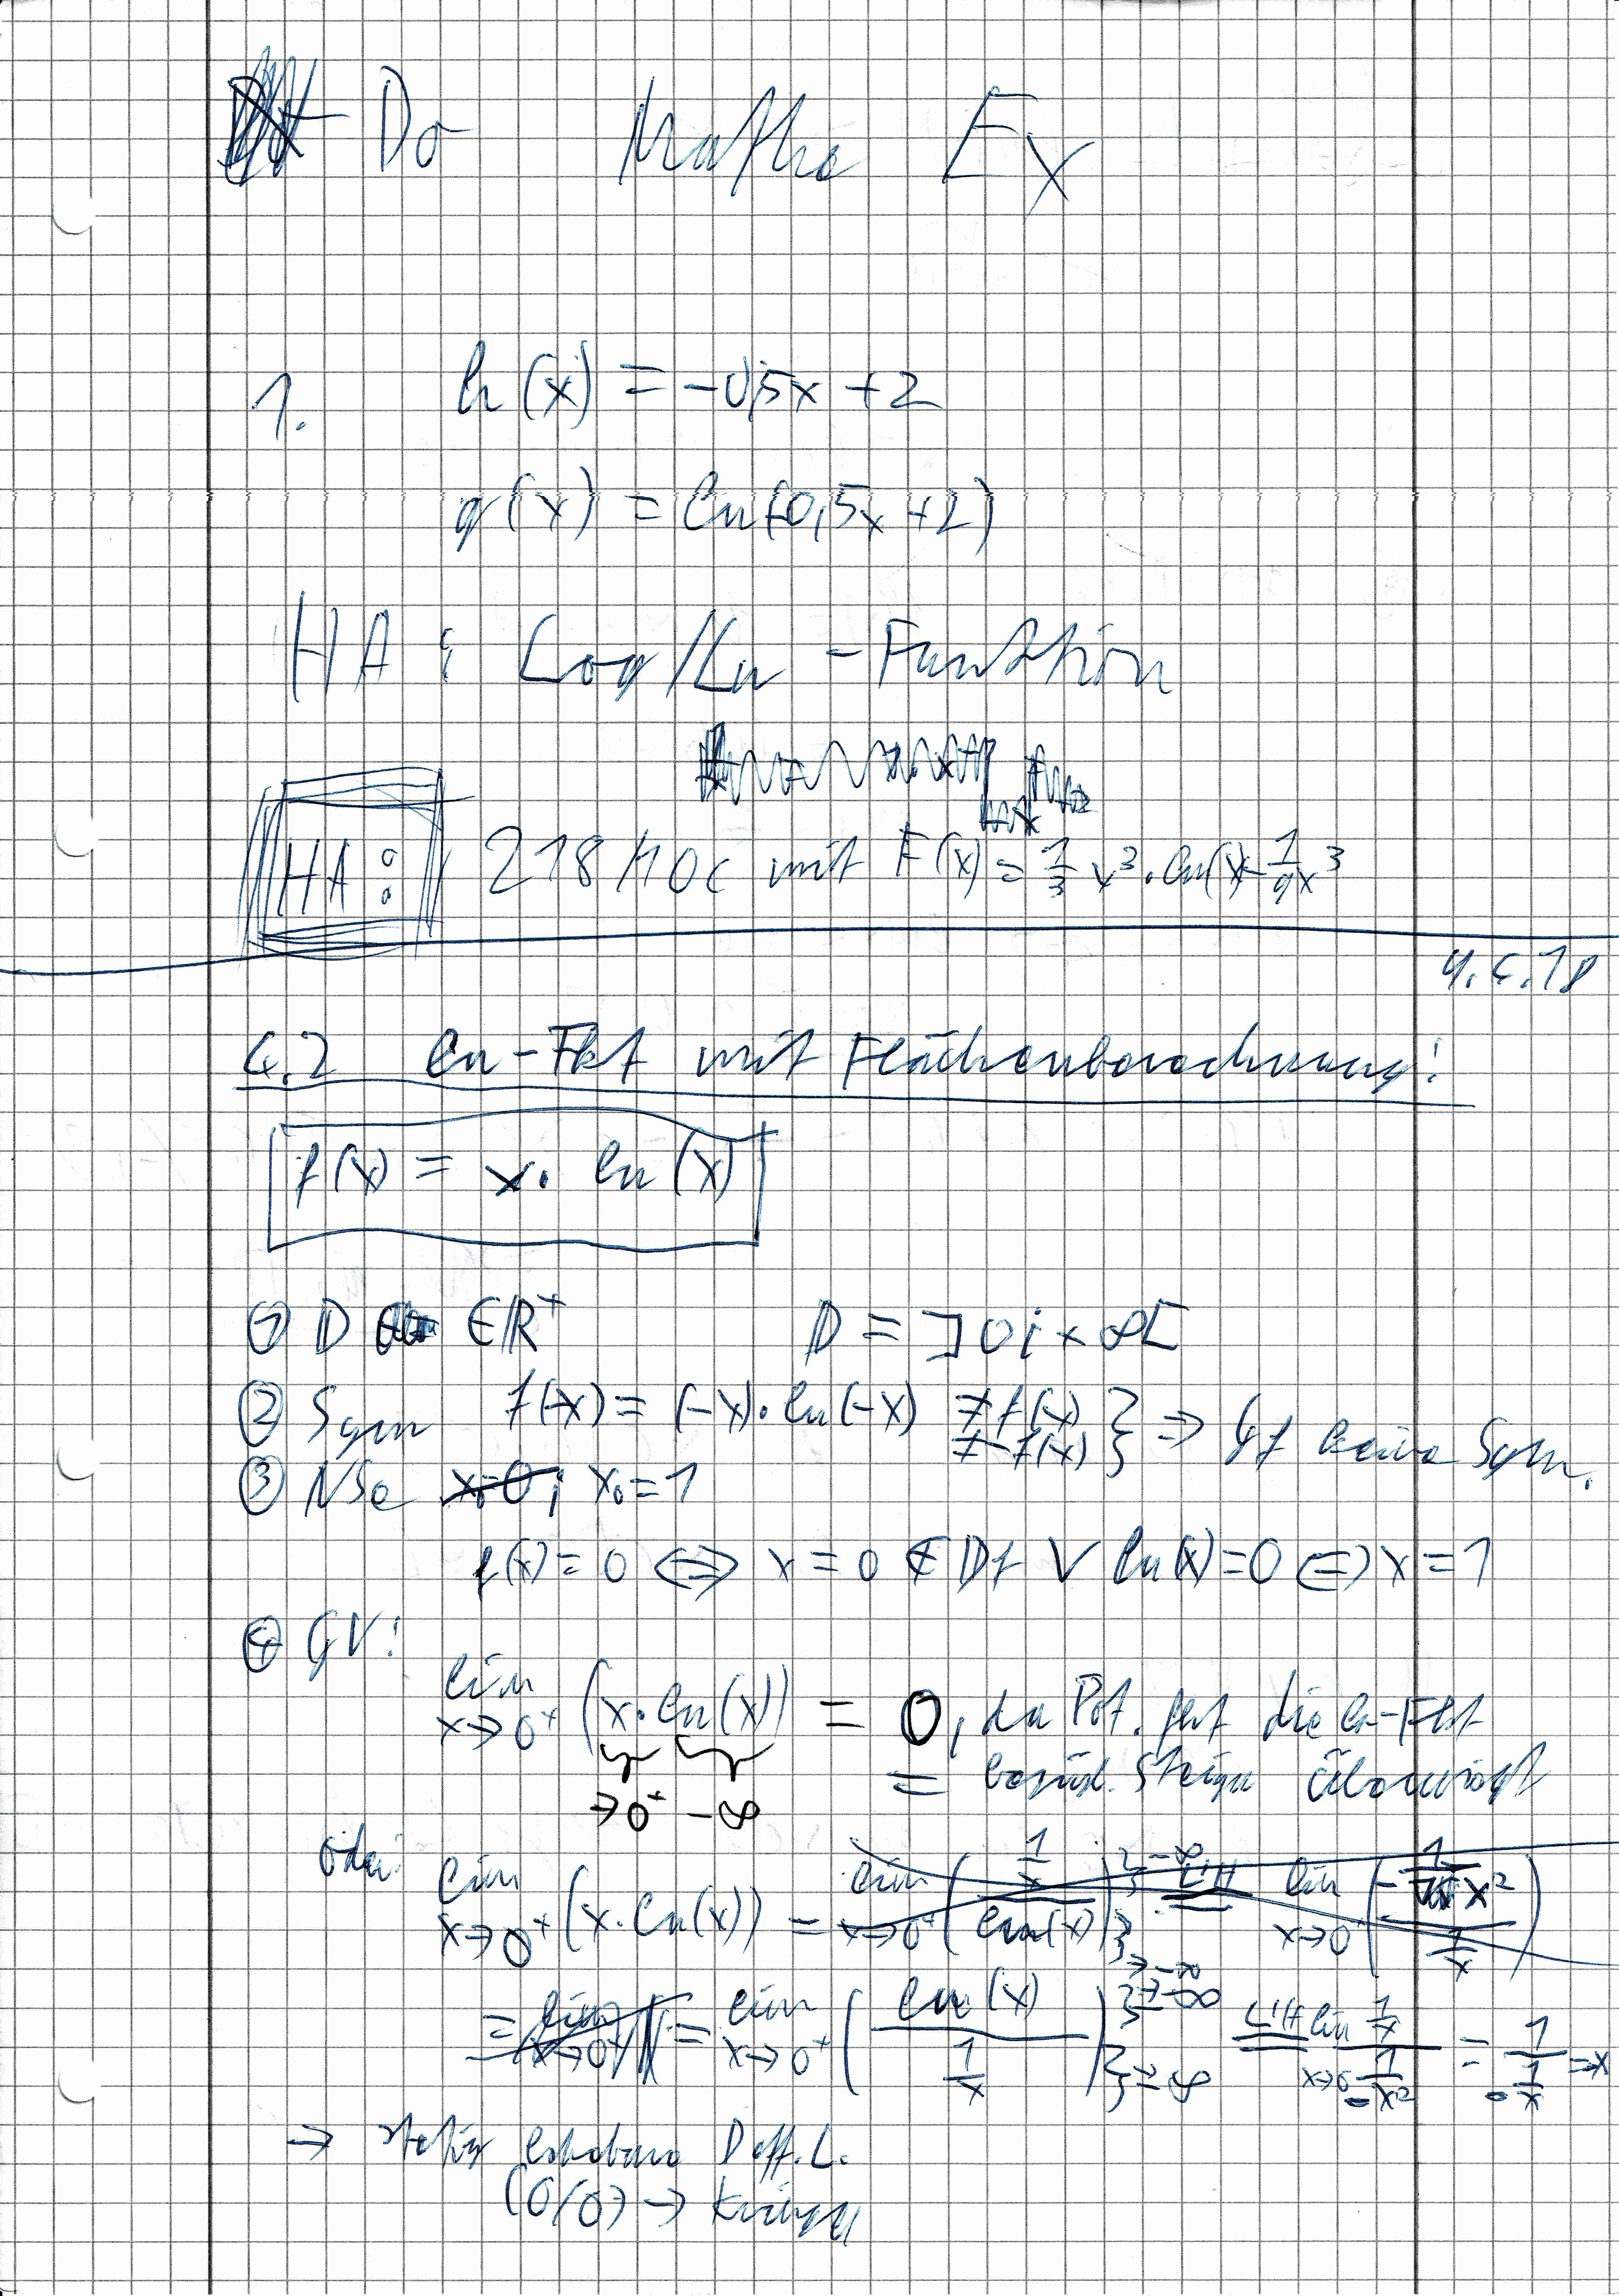 Do Mathe Ex
1. h(x) = -0,5x + 2
g(x) = ln(-0,5x + 2)
HA : Log/Ln - Funktion
HA : 218/10c mit F(x) = 1/3 x³ · ln(x) - 1/9 x³
4.2 ln-Fkt mit Flächenberechnung!
f(x) = x · ln(x)
① D ∈ ℝ⁺ D = ]0; ∞[
② Sym f(-x) = (-x) · ln(-x) ≠ f(x) ≠ -f(x) } ⇒ Gf keine Sym.
③ NSe x₀=0; x₀ = 1
f(x) = 0 ⇔ x = 0 ∉ Df ∨ ln(x) = 0 ⇔ x = 1
④ GV:
lim x→0⁺ (x · ln(x)) = 0, da Pot. fkt die ln-Fkt
→0⁺ -∞ = bezügl. Steign überwiegt
oder lim x→0⁺ (x · ln(x)) = lim x→0⁺ (1/x / ln(x)) } →-∞ L'H lim x→0 (-1/x² / 1/x)
= lim x→0⁺ = lim x→0⁺ (ln(x) / 1/x) } →-∞ } →∞ L'H lim x→0 1/x / -1/x² = 1 / -1/x = -x
→ stetig behebbare Deff.L.
(0/0) → Kringel